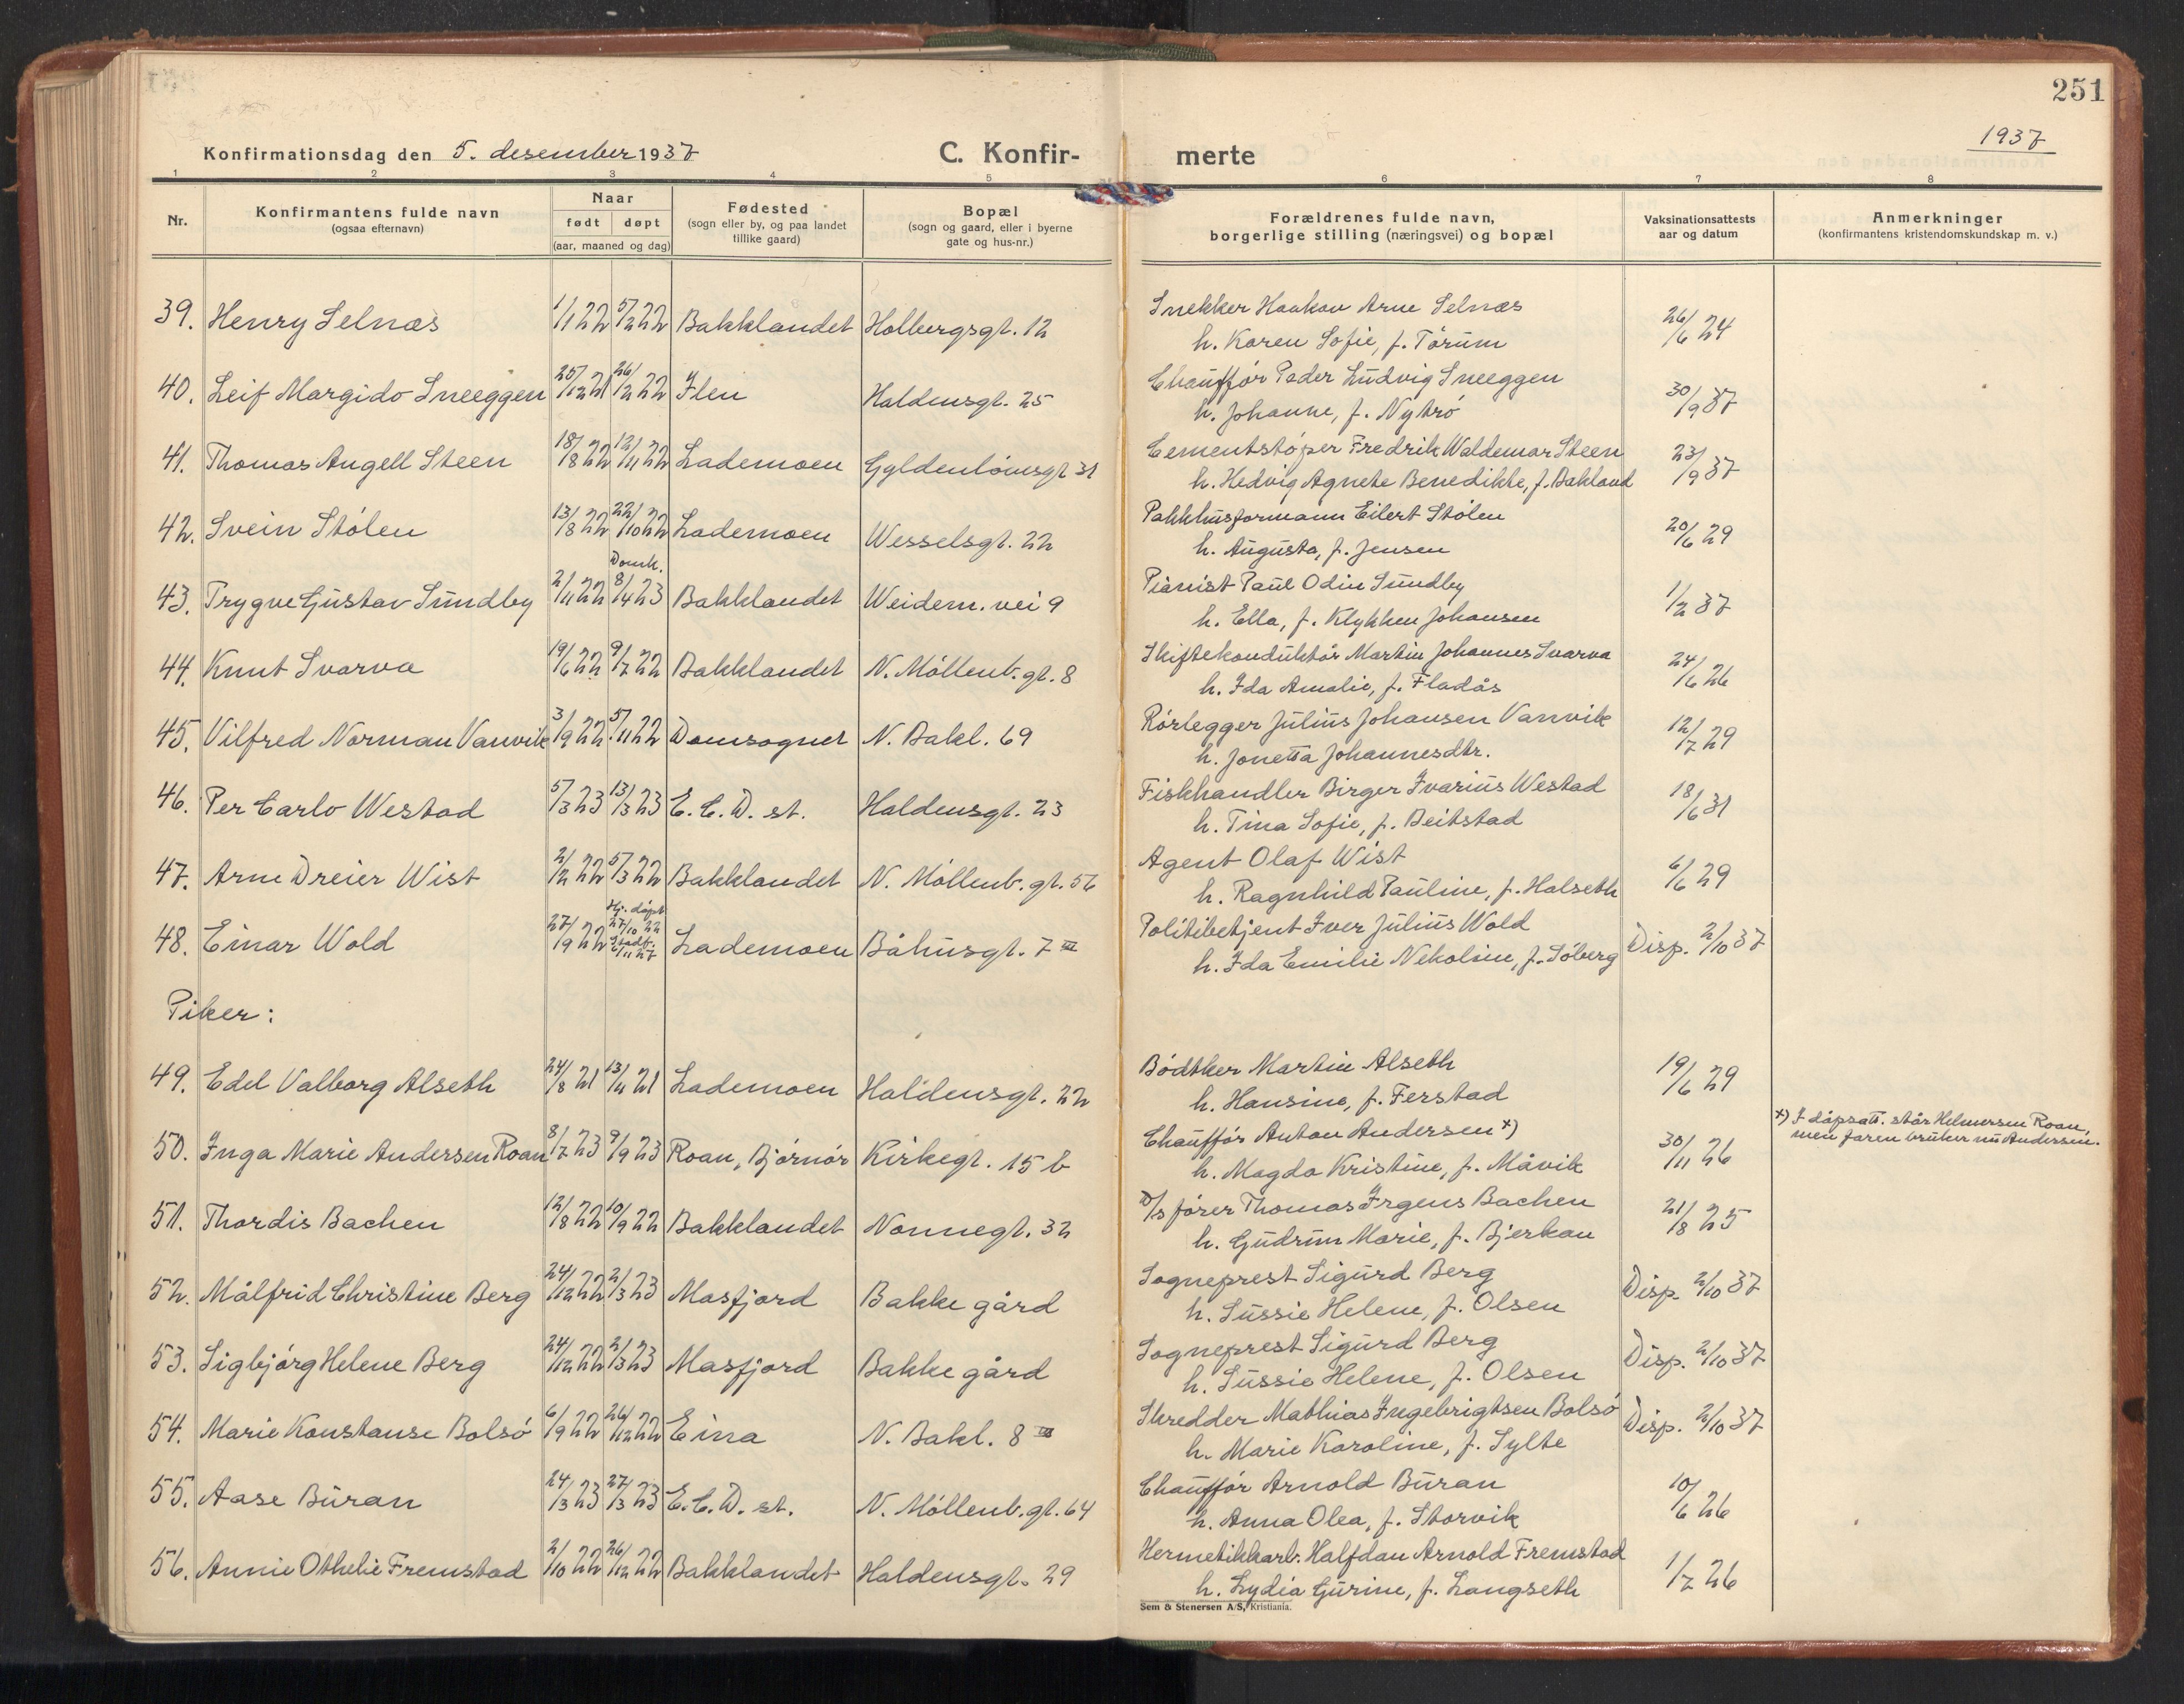 251
1937
Konfirmationsdag den 5. desember 1937
C. Konfir-
merte
1 2 3 4 5 6 7 8
Nr.
Konfirmantens fulde navn
(ogsaa efternavn)
Naar
født døpt
(aar, maaned og dag)
Fødested
(sogn eller by, og paa landet
tillike gaard)
Bopæl
(sogn og gaard, eller i byerne
gate og hus-nr.)
Forældrenes fulde navn,
borgerlige stilling (næringsvei) og bopæl
Vaksinationsattests
aar og datum
Anmerkninger
(konfirmantens kristendomskundskap m. v.)
39. Henry Selnæs 1/1 22 5/2 22 Bakklandet Holbergsgt. 12
Snekker Haakon Arne Selnæs
h. Karen Sofie, f. Tørum
26/6 24
40. Leif Margido Sneeggen 25/12 21 26/2 22 Ilen Haldensgt. 25
Chauffør Peder Ludvig Sneeggen
h. Johanne, f. Nytrø
30/9 37
41. Thomas Angell Steen 18/8 22 12/11 22 Lademoen Gyldenløvesgt 31
Cementstøper Fredrik Waldemar Steen
h. Hedvig Agnete Benedikte, f. Bakland
23/9 37
42. Svein Stølen 13/8 22 22/10 22 Lademoen Wesselsgt. 22
Pakkhusformann Eilert Stølen
h. Augusta, f. Jensen
20/6 29
43. Trygve Gustav Sundby 2/11 22 Domk. 8/4 23 Bakklandet Weidem. vei 9
Pianist Paul Odin Sundby
h. Ella, f. Klykken Johansen
1/2 37
44. Knut Svarva 19/6 22 9/7 22 Bakklandet N. Møllenb. gt. 8
Skiftekonduktør Martin Johannes Svarva
h. Ida Amalie, f. Fladås
24/6 26
45. Vilfred Norman Vanvik 3/9 22 5/11 22 Domsognet N. Bakl. 69
Rørlegger Julius Johansen Vanvik
h. Jonetta Johannesdtr.
12/7 29
46. Per Carlo Westad 5/3 23 13/3 23 E. C. D. st. Haldensgt. 23
Fiskhandler Birger Ivarius Westad
h. Tina Sofie, f. Beitstad
18/6 31
47. Arne Dreier Wist 2/2 22 5/3 22 Bakklandet N. Møllenb. gt. 56
Agent Olaf Wist
h. Ragnhild Pauline, f. Halseth
6/6 29
48. Einar Wold 27/9 22 Hj. døpt 27/10 22 Stadf. 6/11 27 Lademoen Båhusgt. 7 III
Politibetjent Iver Julius Wold
h. Ida Emilie Nekoline, f. Søberg
Disp. 2/10 37
Piker:
49. Edel Valborg Alseth 24/8 21 13/11 21 Lademoen Haldensgt. 22
Bødtker Martin Alseth
h. Hansine, f. Ferstad
19/6 29
50. Inga Marie Andersen Roan 8/7 23 9/9 23 Roan, Bjørnør Kirkegt. 15 b
Chauffør Anton Andersen x)
h. Magda Kristine, f. Måvik
30/11 26
x) I dåpsatt. står Helmersen Roan,
men faren bruker nu Andersen.
51. Thordis Bachen 12/8 22 10/9 22 Bakklandet Nonnegt. 32
D/s fører Thomas Irgens Bachen
h. Gudrun Marie, f. Bjerkan
21/8 25
52. Målfrid Christine Berg 24/12 22 2/3 23 Masfjord Bakke gård
Sogneprest Sigurd Berg
h. Sussie Helene, f. Olsen
Disp. 2/10 37
53. Sigbjørg Helene Berg 24/12 22 2/3 23 Masfjord Bakke gård
Sogneprest Sigurd Berg
h. Sussie Helene, f. Olsen
Disp. 2/10 37
54. Marie Konstanse Bolsø 6/9 22 26/12 22 Eina N. Bakl. 8 III
Skredder Mathias Ingebrigtsen Bolsø
h. Marie Karoline, f. Sylte
Disp. 2/10 37
55. Aase Buran 24/3 23 27/3 23 E. C. D. st. N. Møllenb. gt. 64
Chauffør Arnold Buran
h. Anna Olea, f. Storvik
10/6 26
56. Annie Othelie Fremstad 2/10 22 26/12 22 Bakklandet Haldensgt. 29
Hermetikkarb. Halfdan Arnold Fremstad
h. Lydia Gurine, f. Langseth
1/7 26
Sem & Stenersen A/S, Kristiania.